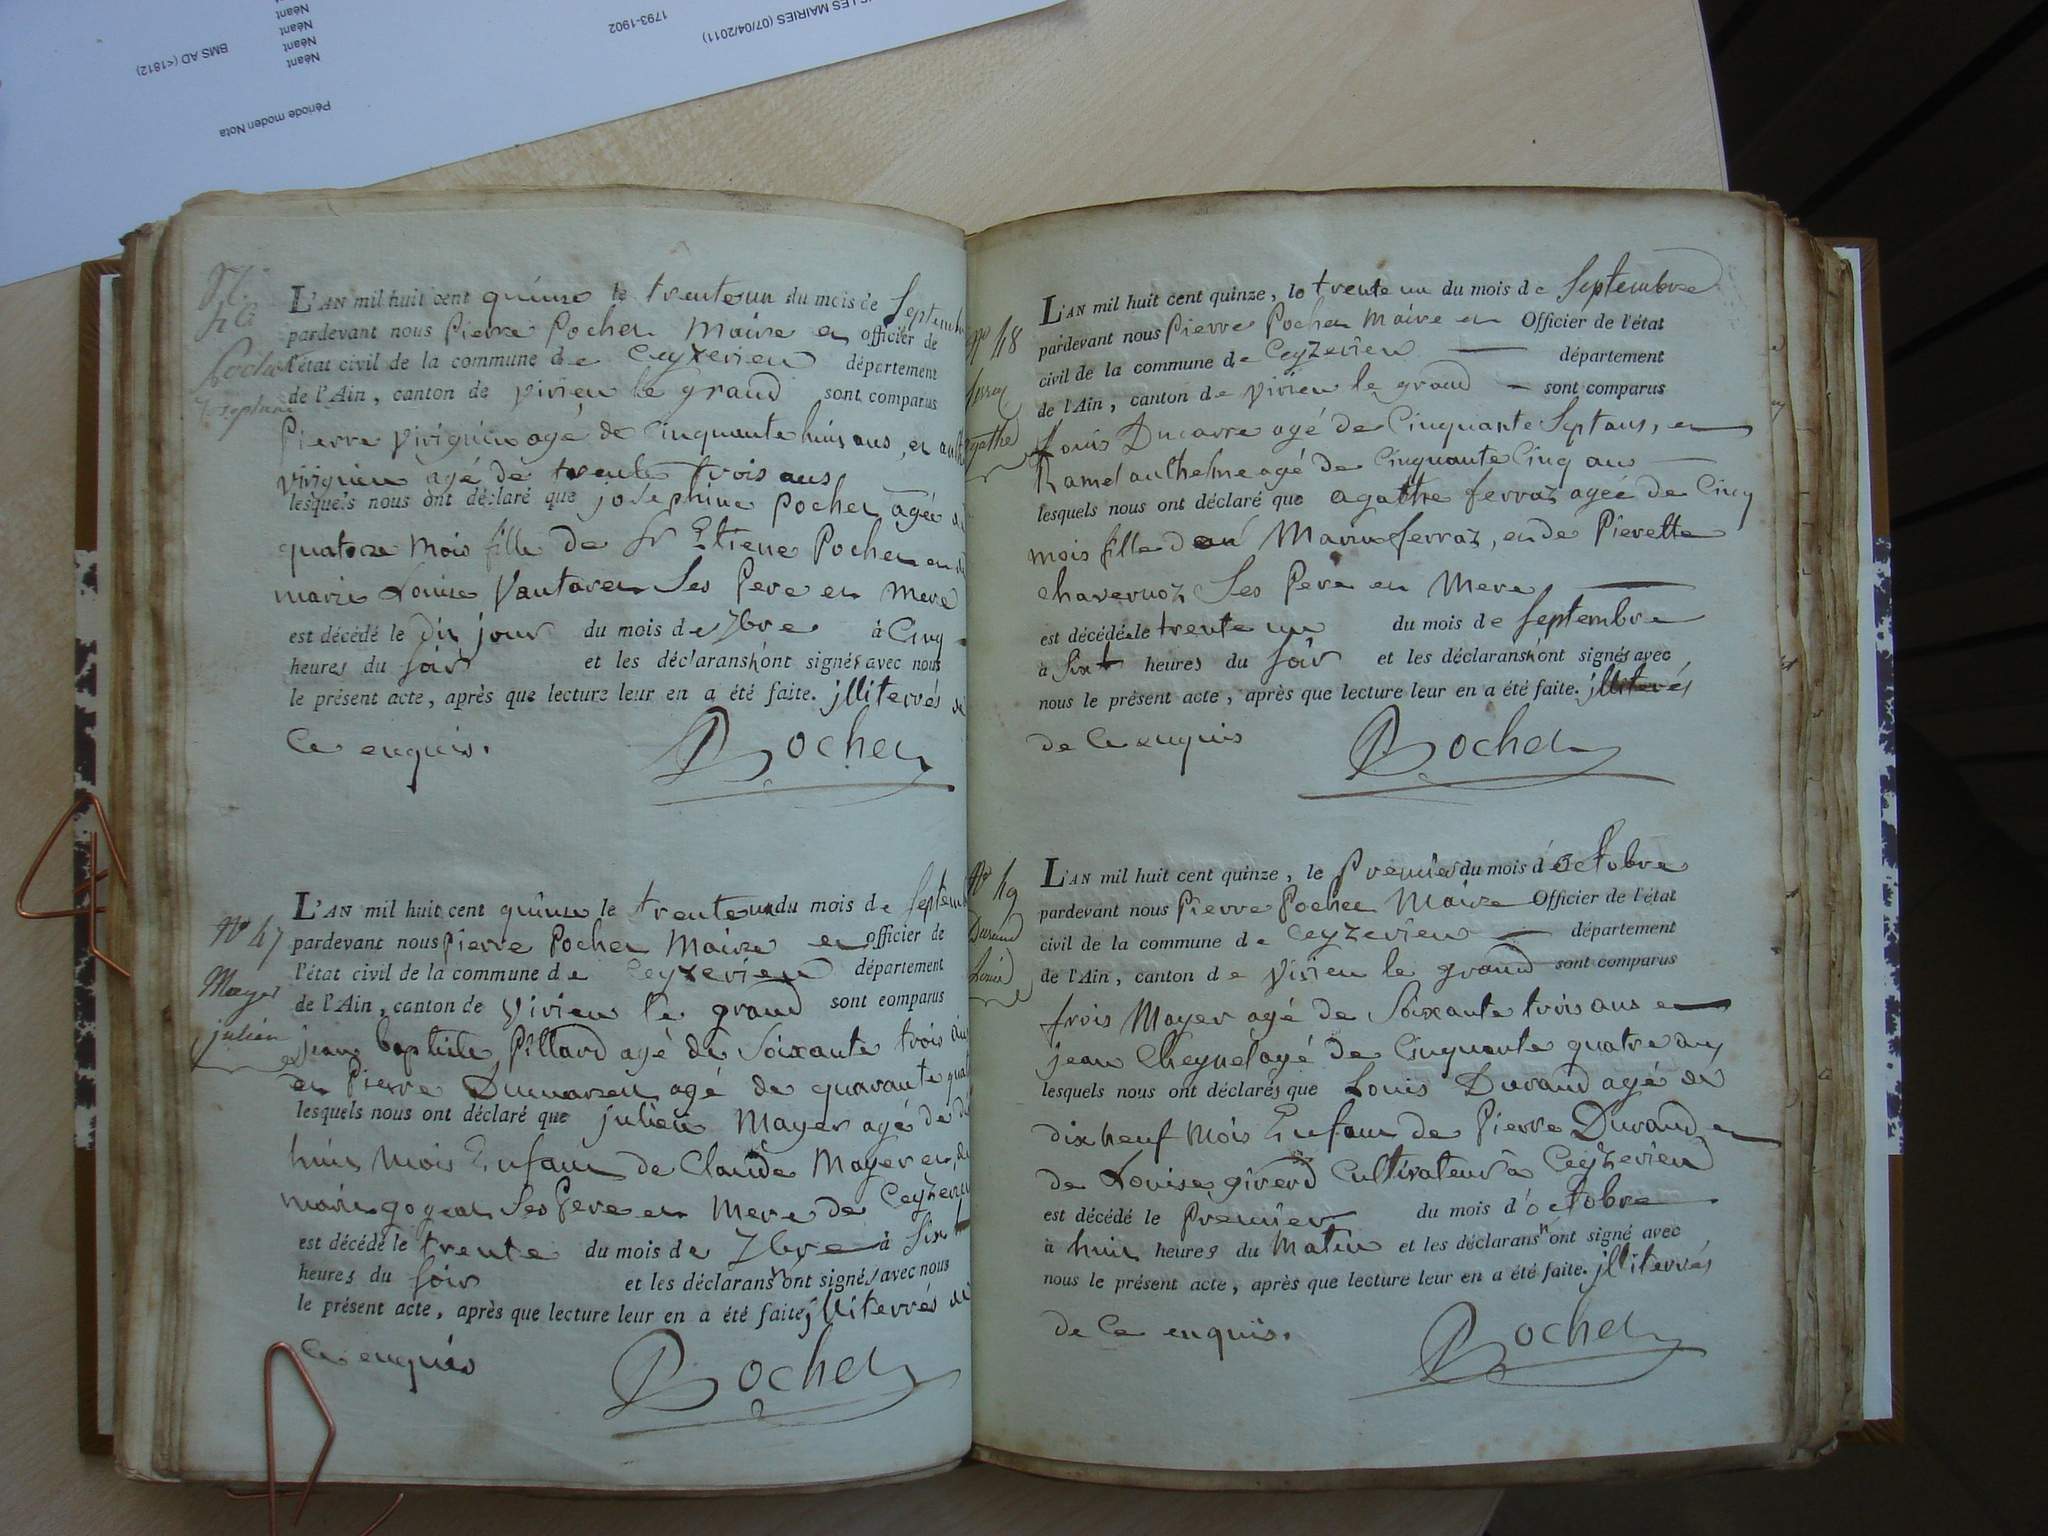 LES MAIRIES (07/04/2011)
1793-1902
BMS AD (<1812)
Néant
Néant
Néant
Néant
Période moden Nota
L'AN mil huit cent quinze le trente un du mois de Septembre
pardevant nous Pierre Pochet Maire et officier de
l'état civil de la commune de Ceyzerieu département
de l'Ain, canton de virieu le grand sont comparus
Josephine
Pierre Virignieu agé de cinquante huit ans, et
virignieu agé de trente trois ans
lesquels nous ont déclaré que joséphine Pochet agée de
quatorze mois fille de Sr Etiene Pochet et de
marie Louise Vautaret Ses Pere et mere
est décédé le dix jour du mois de 7bre à Cinq
heures du soir et les déclarans n'ont signés avec nous
le présent acte, après que lecture leur en a été faite. jlliterrés de
Ce enquis.
Pochet
N° 47
Mayet
julien
L'AN mil huit cent quinze le trente un du mois de Septemb
pardevant nous Pierre Pochet Maire et officier de
l'état civil de la commune de Ceyzerieu département
de l'Ain, canton de virieu le grand sont comparus
jean baptiste Pillard agé de Soixante trois ans
et Pierre Ducarret agé de quarante quat
lesquels nous ont déclaré que julien Mayet agé de dix
huit mois Enfant de Claude Mayet et de
marie gogeat Ses Pere et Mere de Ceyzerieu
est décédé le trente du mois de 7bre à Six
heures du soir et les déclarans n'ont signés avec nous
le présent acte, après que lecture leur en a été faite jlliterrés de
Ce enquis
Pochet
N° 48
ferraz
agathe
L'AN mil huit cent quinze, le trente un du mois de Septembre
pardevant nous Pierre Pochet Maire et Officier de l'état
civil de la commune de Ceyzerieu département
de l'Ain, canton de virieu le grand sont comparus
Louis Ducarre agé de Cinquante Sept ans, et
Ramel anthelme agé de Cinquante Cinq ans
lesquels nous ont déclaré que agathe ferraz agée de Cinq
mois fille de Marin ferraz, et de Pierette
chavernoz Ses Pere et Mere
est décédé le trente un du mois de Septembre
à Six heures du soir et les déclarans n'ont signés avec
nous le présent acte, après que lecture leur en a été faite. jlliterés
de Ce enquis
Pochet
N° 49
Durand
Louis
L'AN mil huit cent quinze, le Premier du mois d'octobre
pardevant nous Pierre Pochet Maire Officier de l'état
civil de la commune de Ceyzerieu département
de l'Ain, canton de Virieu le grand sont comparus
frois Mayet agé de Soixante trois ans et
jean Cheynet agé de Cinquante quatre ans
lesquels nous ont déclarés que Louis Durand agé de
dix neuf mois Enfant de Pierre Durand et
de Louise girerd Cultivateur à Ceyzerieu
est décédé le Premier du mois d'octobre
à huit heures du Matin et les déclarans n'ont signé avec
nous le présent acte, après que lecture leur en a été faite. jlliterrés
de Ce enquis.
Pochet